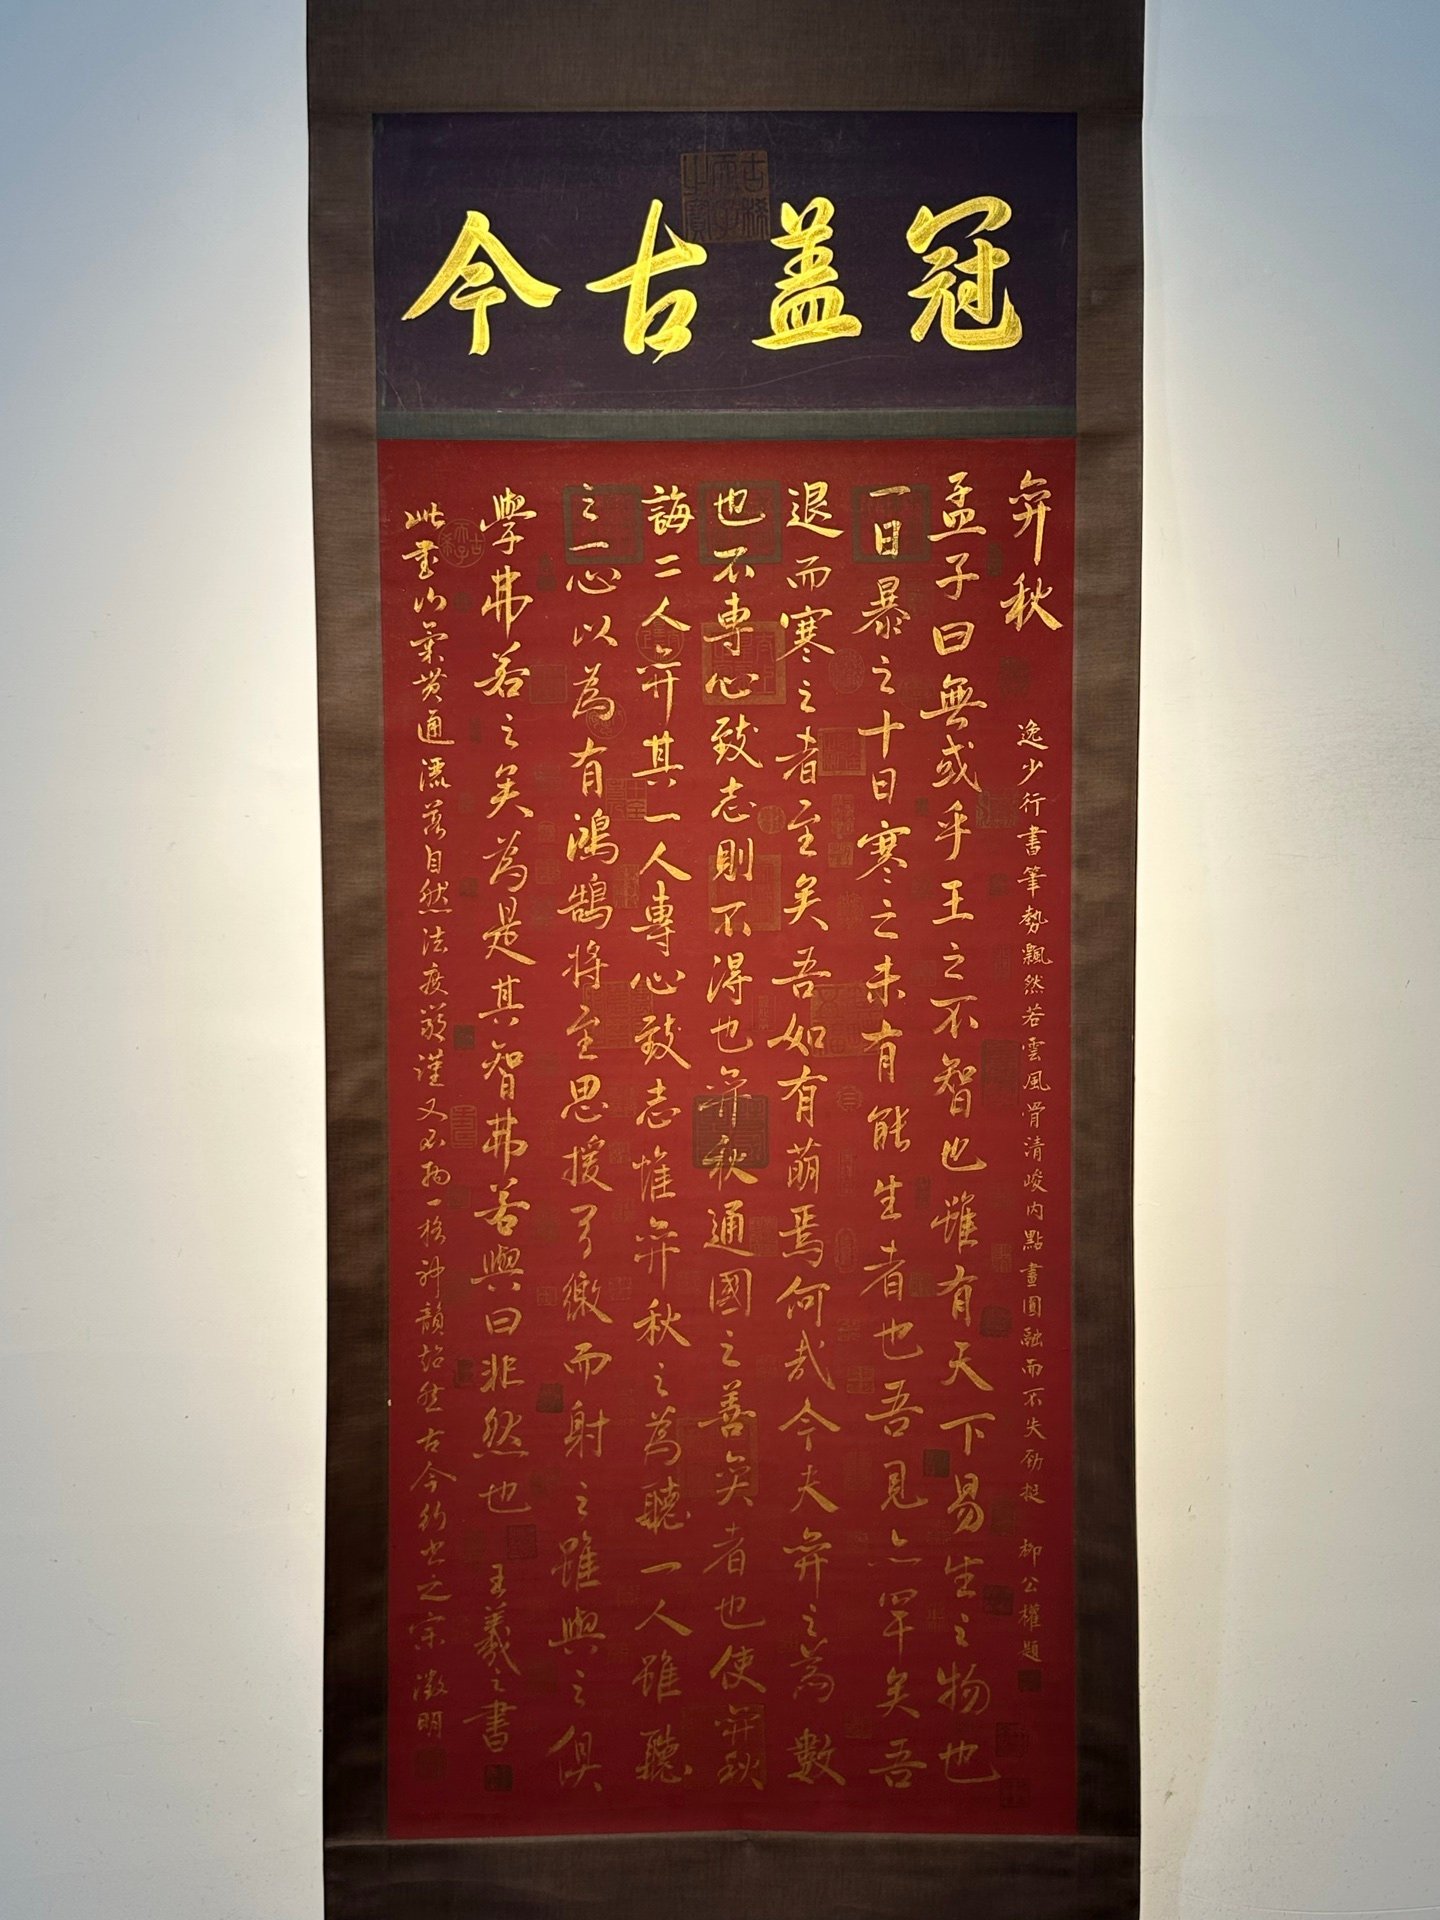 冠盖古今
弈秋
逸少行書筆勢飄然若雲風骨清峻內點畫圓融而不失劲挺 柳公權題
孟子曰無或乎王之不智也雖有天下易生之物也
一日暴之十日寒之未有能生者也吾見亦罕矣吾
退而寒之者至矣吾如有萌焉何哉今夫弈之為數
也不專心致志則不得也弈秋通國之善奕者也使弈秋
誨二人弈其一人專心致志惟弈秋之為聽一人雖聽
之一心以為有鴻鵠將至思援弓繳而射之雖與之俱
學弗若之矣為是其智弗若與曰非然也 王羲之書
此書行氣貫通灑落自然法度嚴謹又不拘一格神韻超然古今行書之宗 徵明